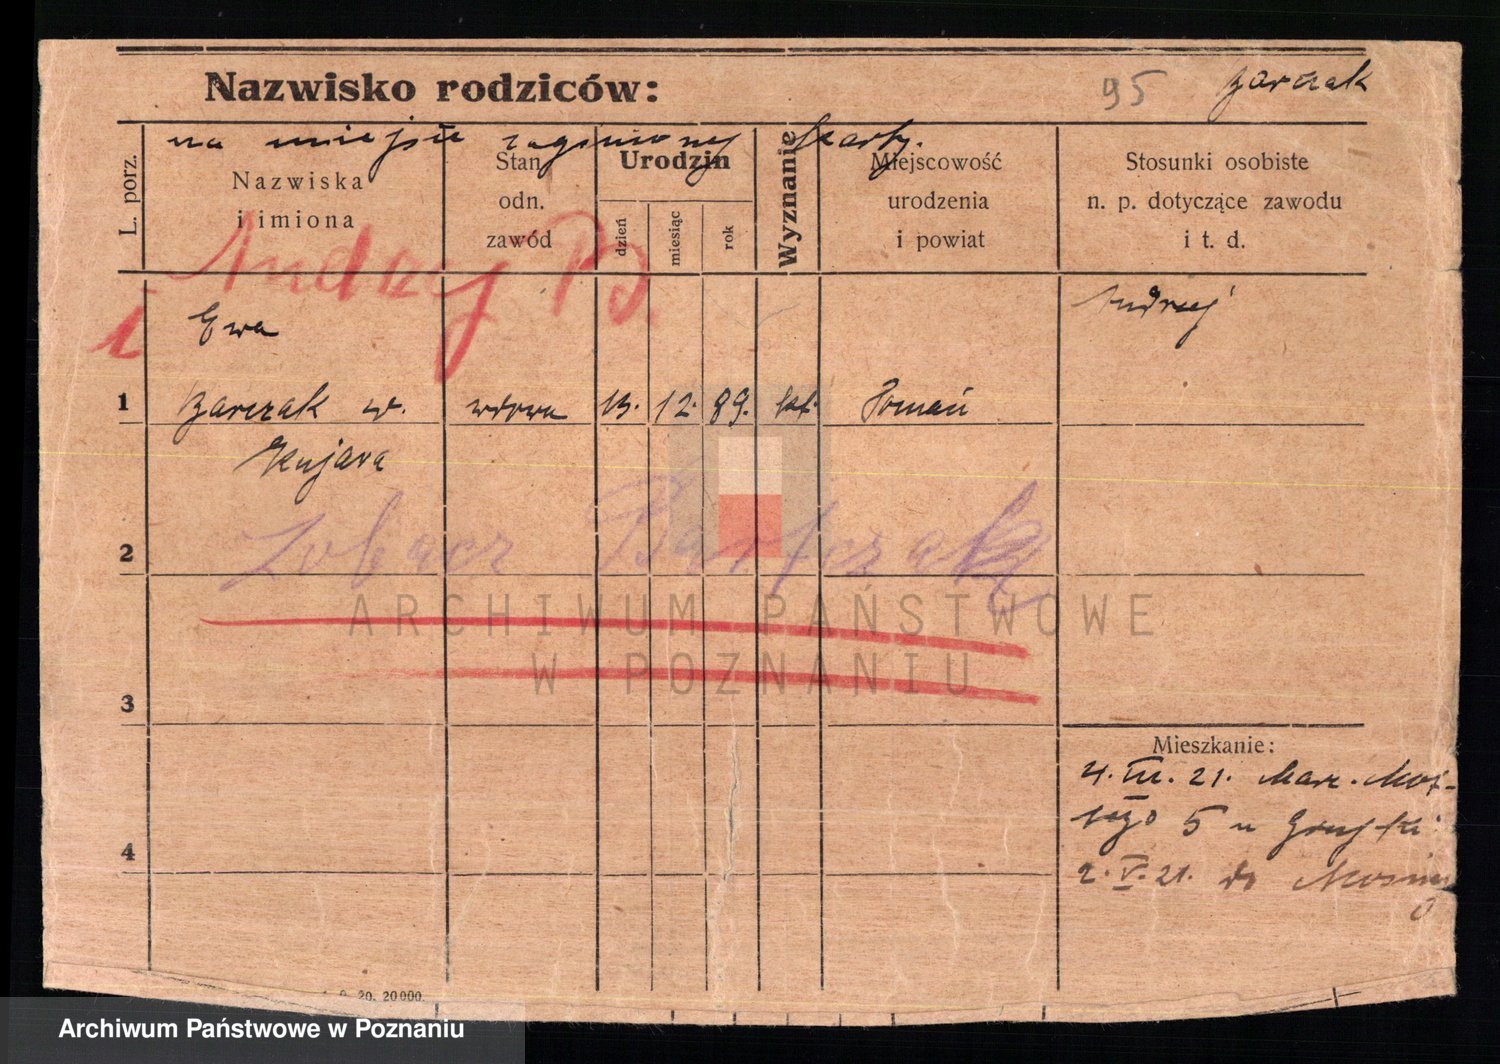 Nazwisko rodziców: 95 Barczak
na miejsce zaginionej karty.
L. porz.
Nazwiska
i imiona
Stan
odn.
zawód
Urodzin
dzień
miesiąc
rok
Wyznanie
Miejscowość
urodzenia
i powiat
Stosunki osobiste
n. p. dotyczące zawodu
i t. d.
Andrzej B.
i
Ewa
Andrzej
1 Barczak w. wdowa 13. 12. 89. kat. Poznań
Kujawa
Zobacz Bartczak
2
3
Mieszkanie:
4. III. 21. Marz.
5 u
4
2. V. 21. do
20 000.
ARCHIWUM PAŃSTWOWE
W POZNANIU
Archiwum Państwowe w Poznaniu